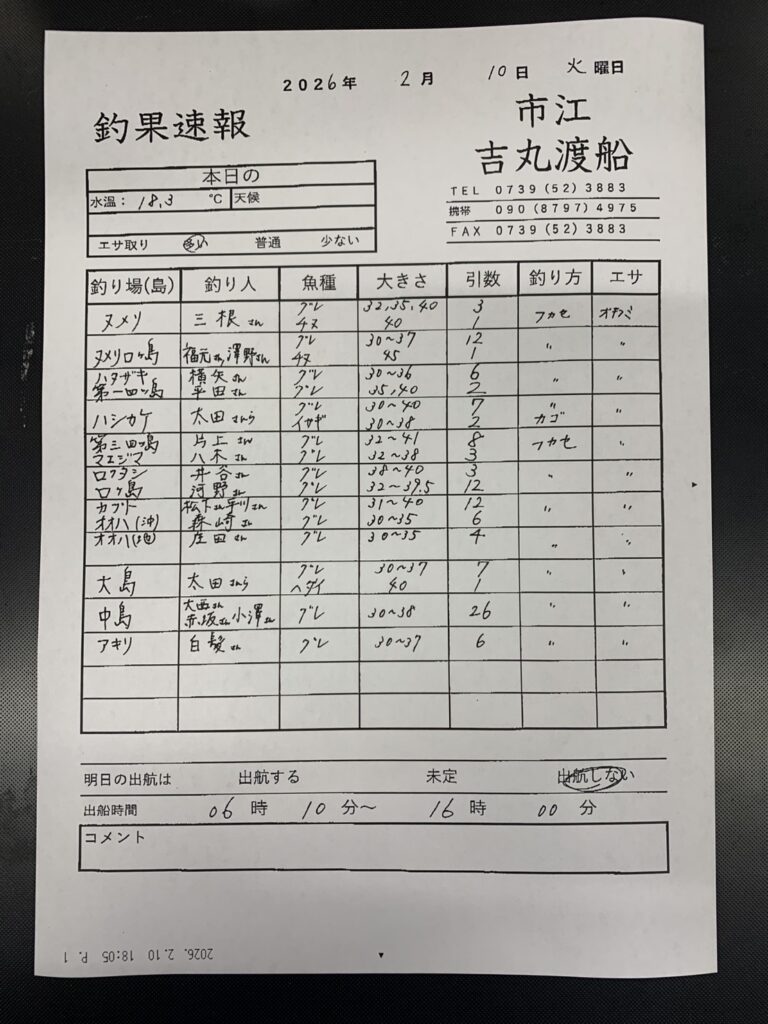 2026年 2月 10日 火曜日
釣果速報
市江
吉丸渡船
TEL 0739(52)3883
携帯 090(8797)4975
FAX 0739(52)3883
本日の
水温: 18.3 ℃ 天候
エサ取り 多い 普通 少ない
釣り場(島) 釣り人 魚種 大きさ 引数 釣り方 エサ
ヌメリ 三根さん グレ 32,35,40 3 フカセ オキアミ
チヌ 40 1
ヌメリロヶ島 福元さん澤野さん グレ 30~37 12 〃 〃
チヌ 45 1
ハタザキ 横矢さん グレ 30~36 6 〃 〃
第一四ツ島 平田さん グレ 35,40 2
ハシカケ 太田さんら グレ 30~40 7 〃 〃
イサギ 30~38 2 カゴ
第三四ツ島 片上さん グレ 32~41 8 フカセ 〃
マエジマ 八木さん グレ 32~38 3
ロクタン 井谷さん グレ 38~40 3 〃 〃
ロヶ島 河野さん グレ 32~39.5 12
カブト 松下さん平川さん グレ 31~40 12 〃 〃
オオハ(沖) 森崎さん グレ 30~35 6
オオハ(地) 庄田さん グレ 30~35 4 〃 〃
大島 太田さんら グレ 30~37 7 〃 〃
ヘダイ 40 1
中島 大西さん
赤坂さん小澤さん グレ 30~38 26 〃 〃
アキリ 白髪さん グレ 30~37 6 〃 〃
明日の出航は 出航する 未定 出航しない
出船時間 06時 10分~ 16時 00分
コメント
2026. 2.10 18:05 P. 1